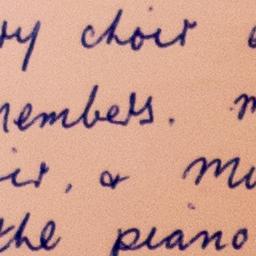 ry choir
members. m
ir, & Mu
the piano